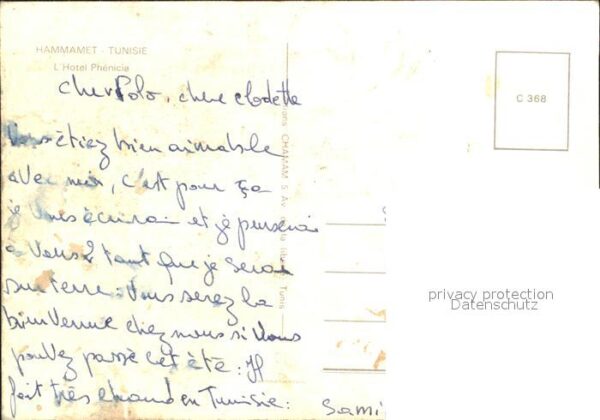 HAMMAMET - TUNISIE
L'Hotel Phénicia
C 368
cher Polo, chere clodette
Vous étiez bien aimable
avec moi, c'est pour ça
je vous écrirai et je penserai
a vous 2 tant que je serai
sur terre. Vous serez la
bienvenue chez nous si vous
pouvez passé cet été: Il
fait très chaud en Tunisie:
Sami
CHAMAM 5, Av. Tunis
privacy protection
Datenschutz